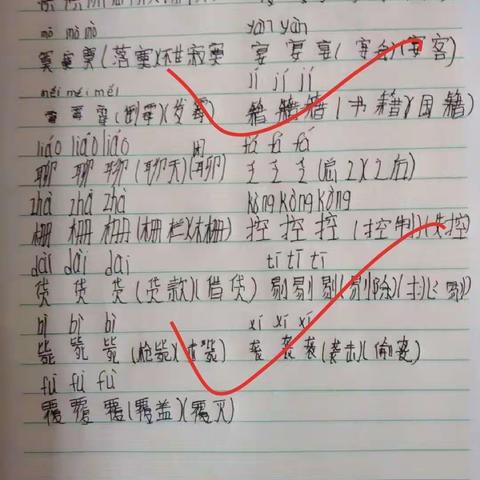 mò mò mò yàn yàn
寞寞寞(落寞)(寂寞) 宴宴宴(宴会)(宴客)
méi méi méi jí jí jí
霉霉霉(倒霉)(发霉) 籍籍籍(书籍)(国籍)
liáo liáo liáo
聊聊聊(聊天)(闲聊)
zhà zhà zhà kòng kòng kòng
栅栅栅(栅栏)(木栅) 控控控(控制)(失控)
dài dài dài tī tī tī
贷贷贷(贷款)(借贷) 剔剔剔(剔除)
bì bì bì xí xí xí
毙毙毙(枪毙) 袭袭袭(袭击)(偷袭)
fù fù fù
覆覆覆(覆盖)(覆灭)